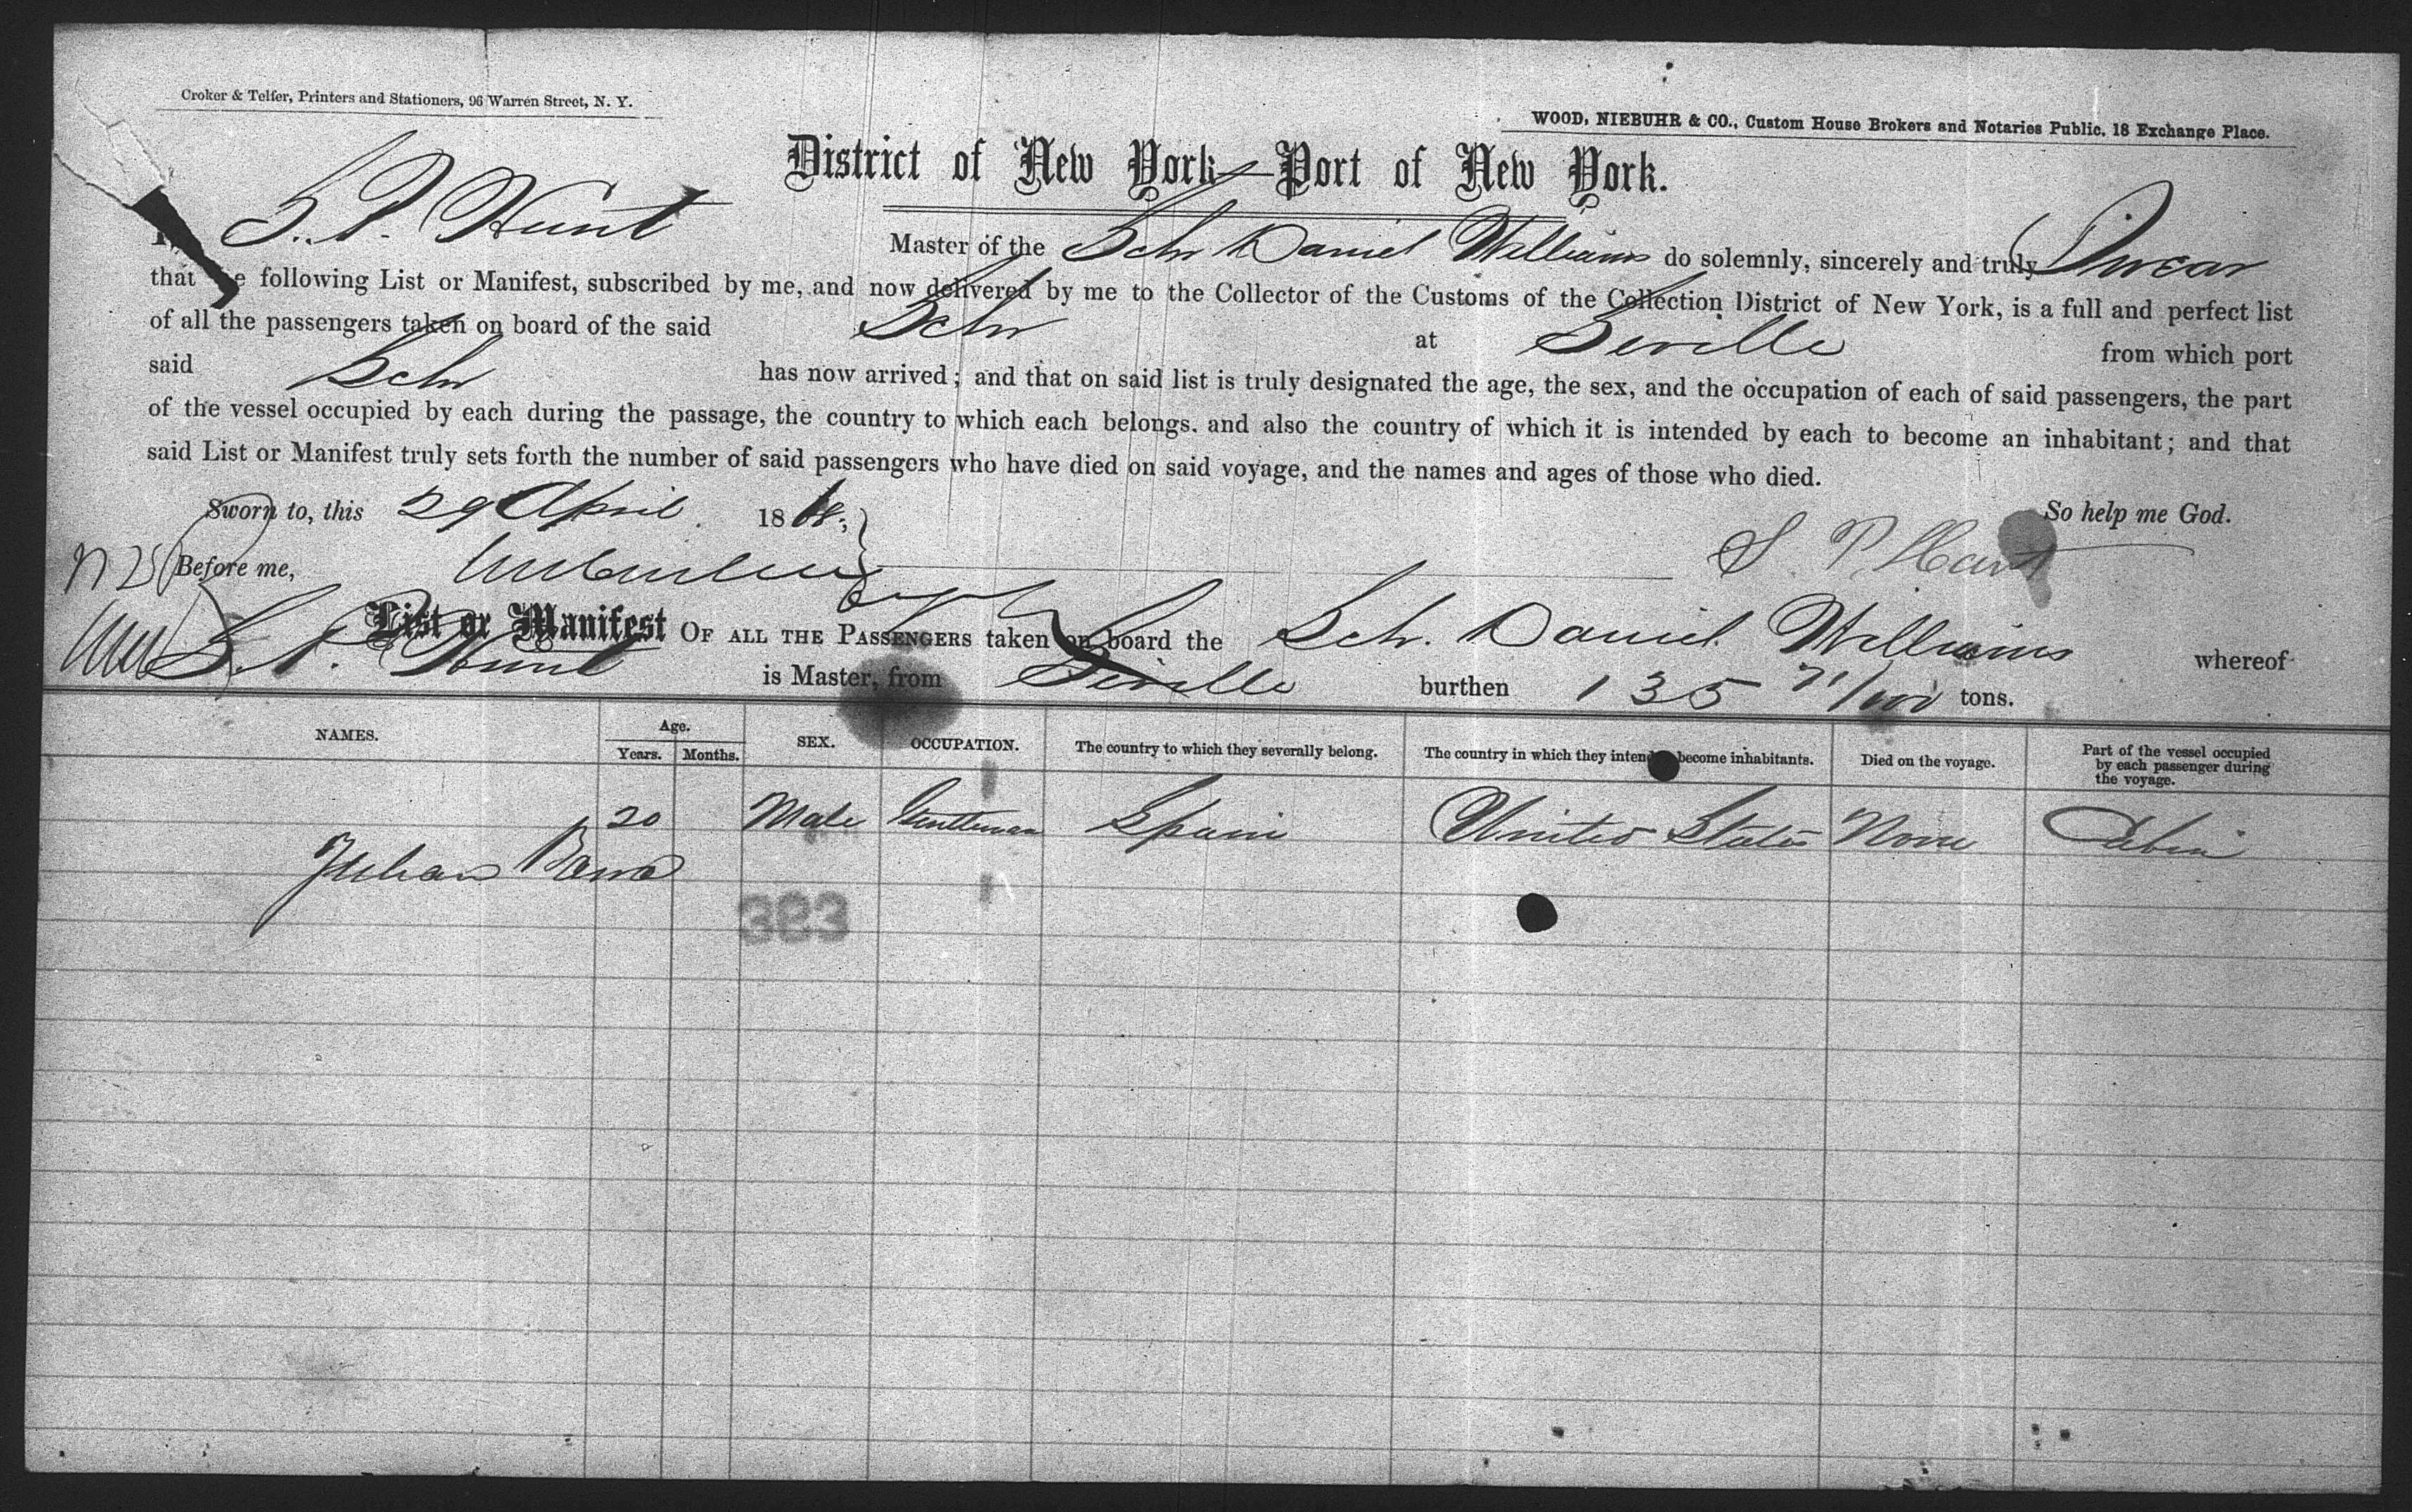 Croker & Telfer, Printers and Stationers, 96 Warren Street, N. Y.
WOOD, NIEBUHR & CO., Custom House Brokers and Notaries Public, 18 Exchange Place.
District of New York—Port of New York.
I, S. P. Hunt Master of the Schr Daniel Williams do solemnly, sincerely and truly Swear
that the following List or Manifest, subscribed by me, and now delivered by me to the Collector of the Customs of the Collection District of New York, is a full and perfect list
of all the passengers taken on board of the said Schr at Seville from which port
said Schr has now arrived; and that on said list is truly designated the age, the sex, and the occupation of each of said passengers, the part
of the vessel occupied by each during the passage, the country to which each belongs. and also the country of which it is intended by each to become an inhabitant; and that
said List or Manifest truly sets forth the number of said passengers who have died on said voyage, and the names and ages of those who died.
Sworn to, this 29 April 1868; So help me God.
Before me, S. P. Hunt
List or Manifest OF ALL THE PASSENGERS taken on board the Schr. Daniel Williams whereof
S. P. Hunt is Master, from Seville burthen 135 71/100 tons.
NAMES. Age. Years. Months. SEX. OCCUPATION. The country to which they severally belong. The country in which they intend become inhabitants. Died on the voyage. Part of the vessel occupied by each passenger during the voyage.
Julian 20 Male Gentleman Spain United States None Cabin
383